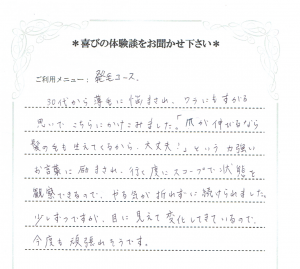 ＊喜びの体験談をお聞かせ下さい＊
ご利用メニュー： 発毛コース
30代から薄毛に悩まされ、ワラにもすがる
思いで、こちらにかけこみました。「爪が伸びるなら
髪の毛も生えてくるから、大丈夫!」という力強い
お言葉に励まされ、行く度にスコープで状態を
観察できるので、やる気が折れずに続けられました。
少しずつですが、目に見えて変化してきているので、
今度も頑張れそうです。